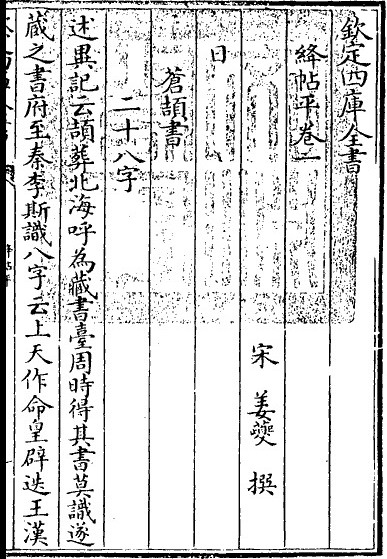 欽定四庫全書
絳帖平卷一
宋 姜夔 撰
日
蒼頡書
二十八字
述異記云頡葬北海呼為藏書臺周時得其書莫識遂
藏之書府至秦李斯識八字云上天作命皇辟迭王漢